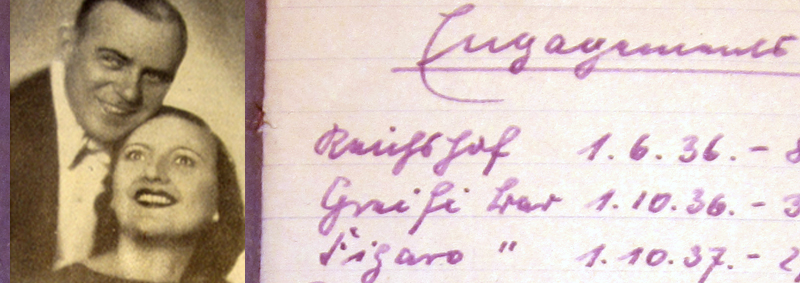 Engagements
Reichshof 1.6.36.-
Bar 1.10.36.- 3
Figaro " 1.10.37.- 2